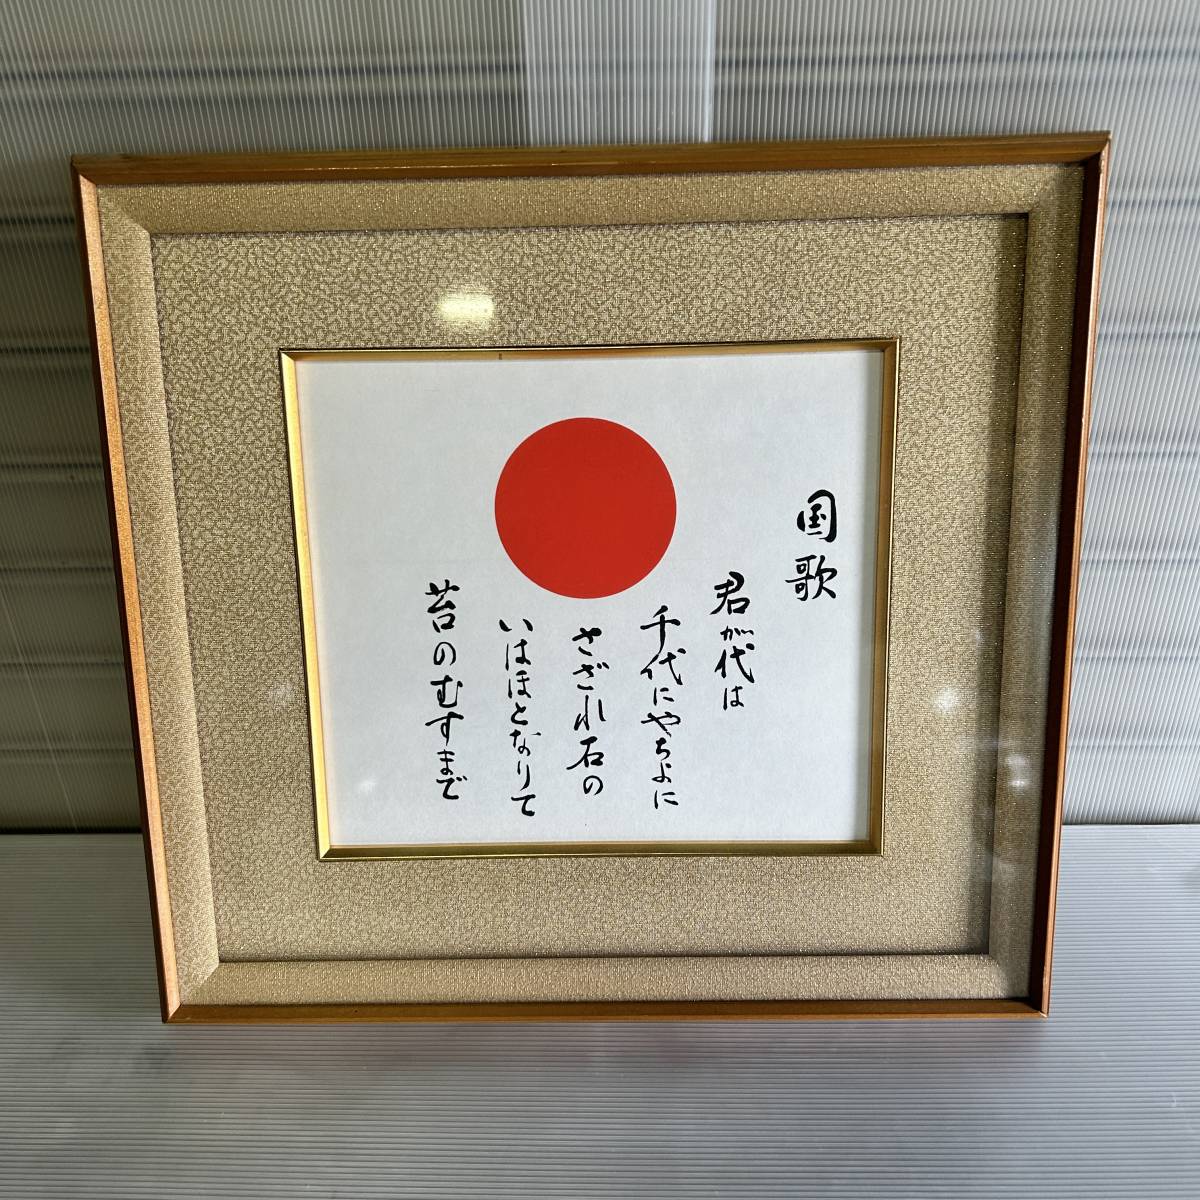 国歌
君が代は
千代にやちよに
さざれ石の
いはほとなりて
苔のむすまで